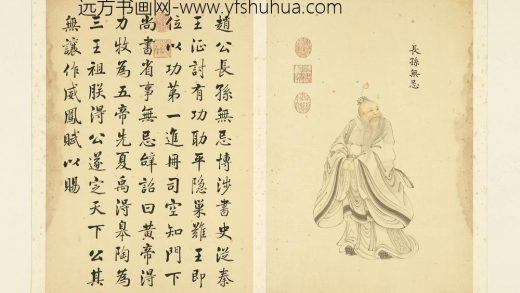 远方书画网-www.yfshuhua.com
長孫無忌
趙公長孫無忌博涉書史從秦
王征討有功助平隐巢難王即
位以功第一進冊司空知門下
尚書省事無忌辤詔曰黄帝得
力牧為五帝先夏禹得皋陶為
三王祖朕得公遂定天下公其
無讓作威鳳賦以賜